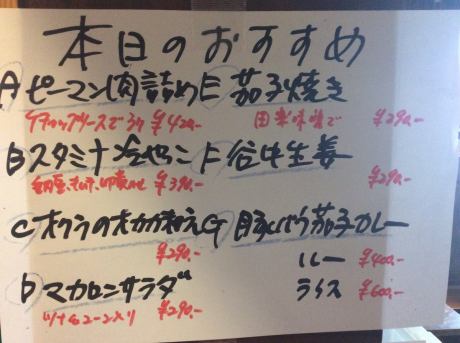 本日のおすすめ
A ピーマン肉詰め
ケチャップソースで 3ケ ¥420-
B スタミナ冷やっこ
納豆、キムチ、卵黄のせ ¥390-
C オクラのオカカ和え
¥290-
D マカロニサラダ
ツナ&コーン入り ¥290-
E 茄子焼き
田楽味噌で ¥290-
F 谷中生姜
¥290-
G 豚バラ茄子カレー
ルー ¥400-
ライス ¥600-